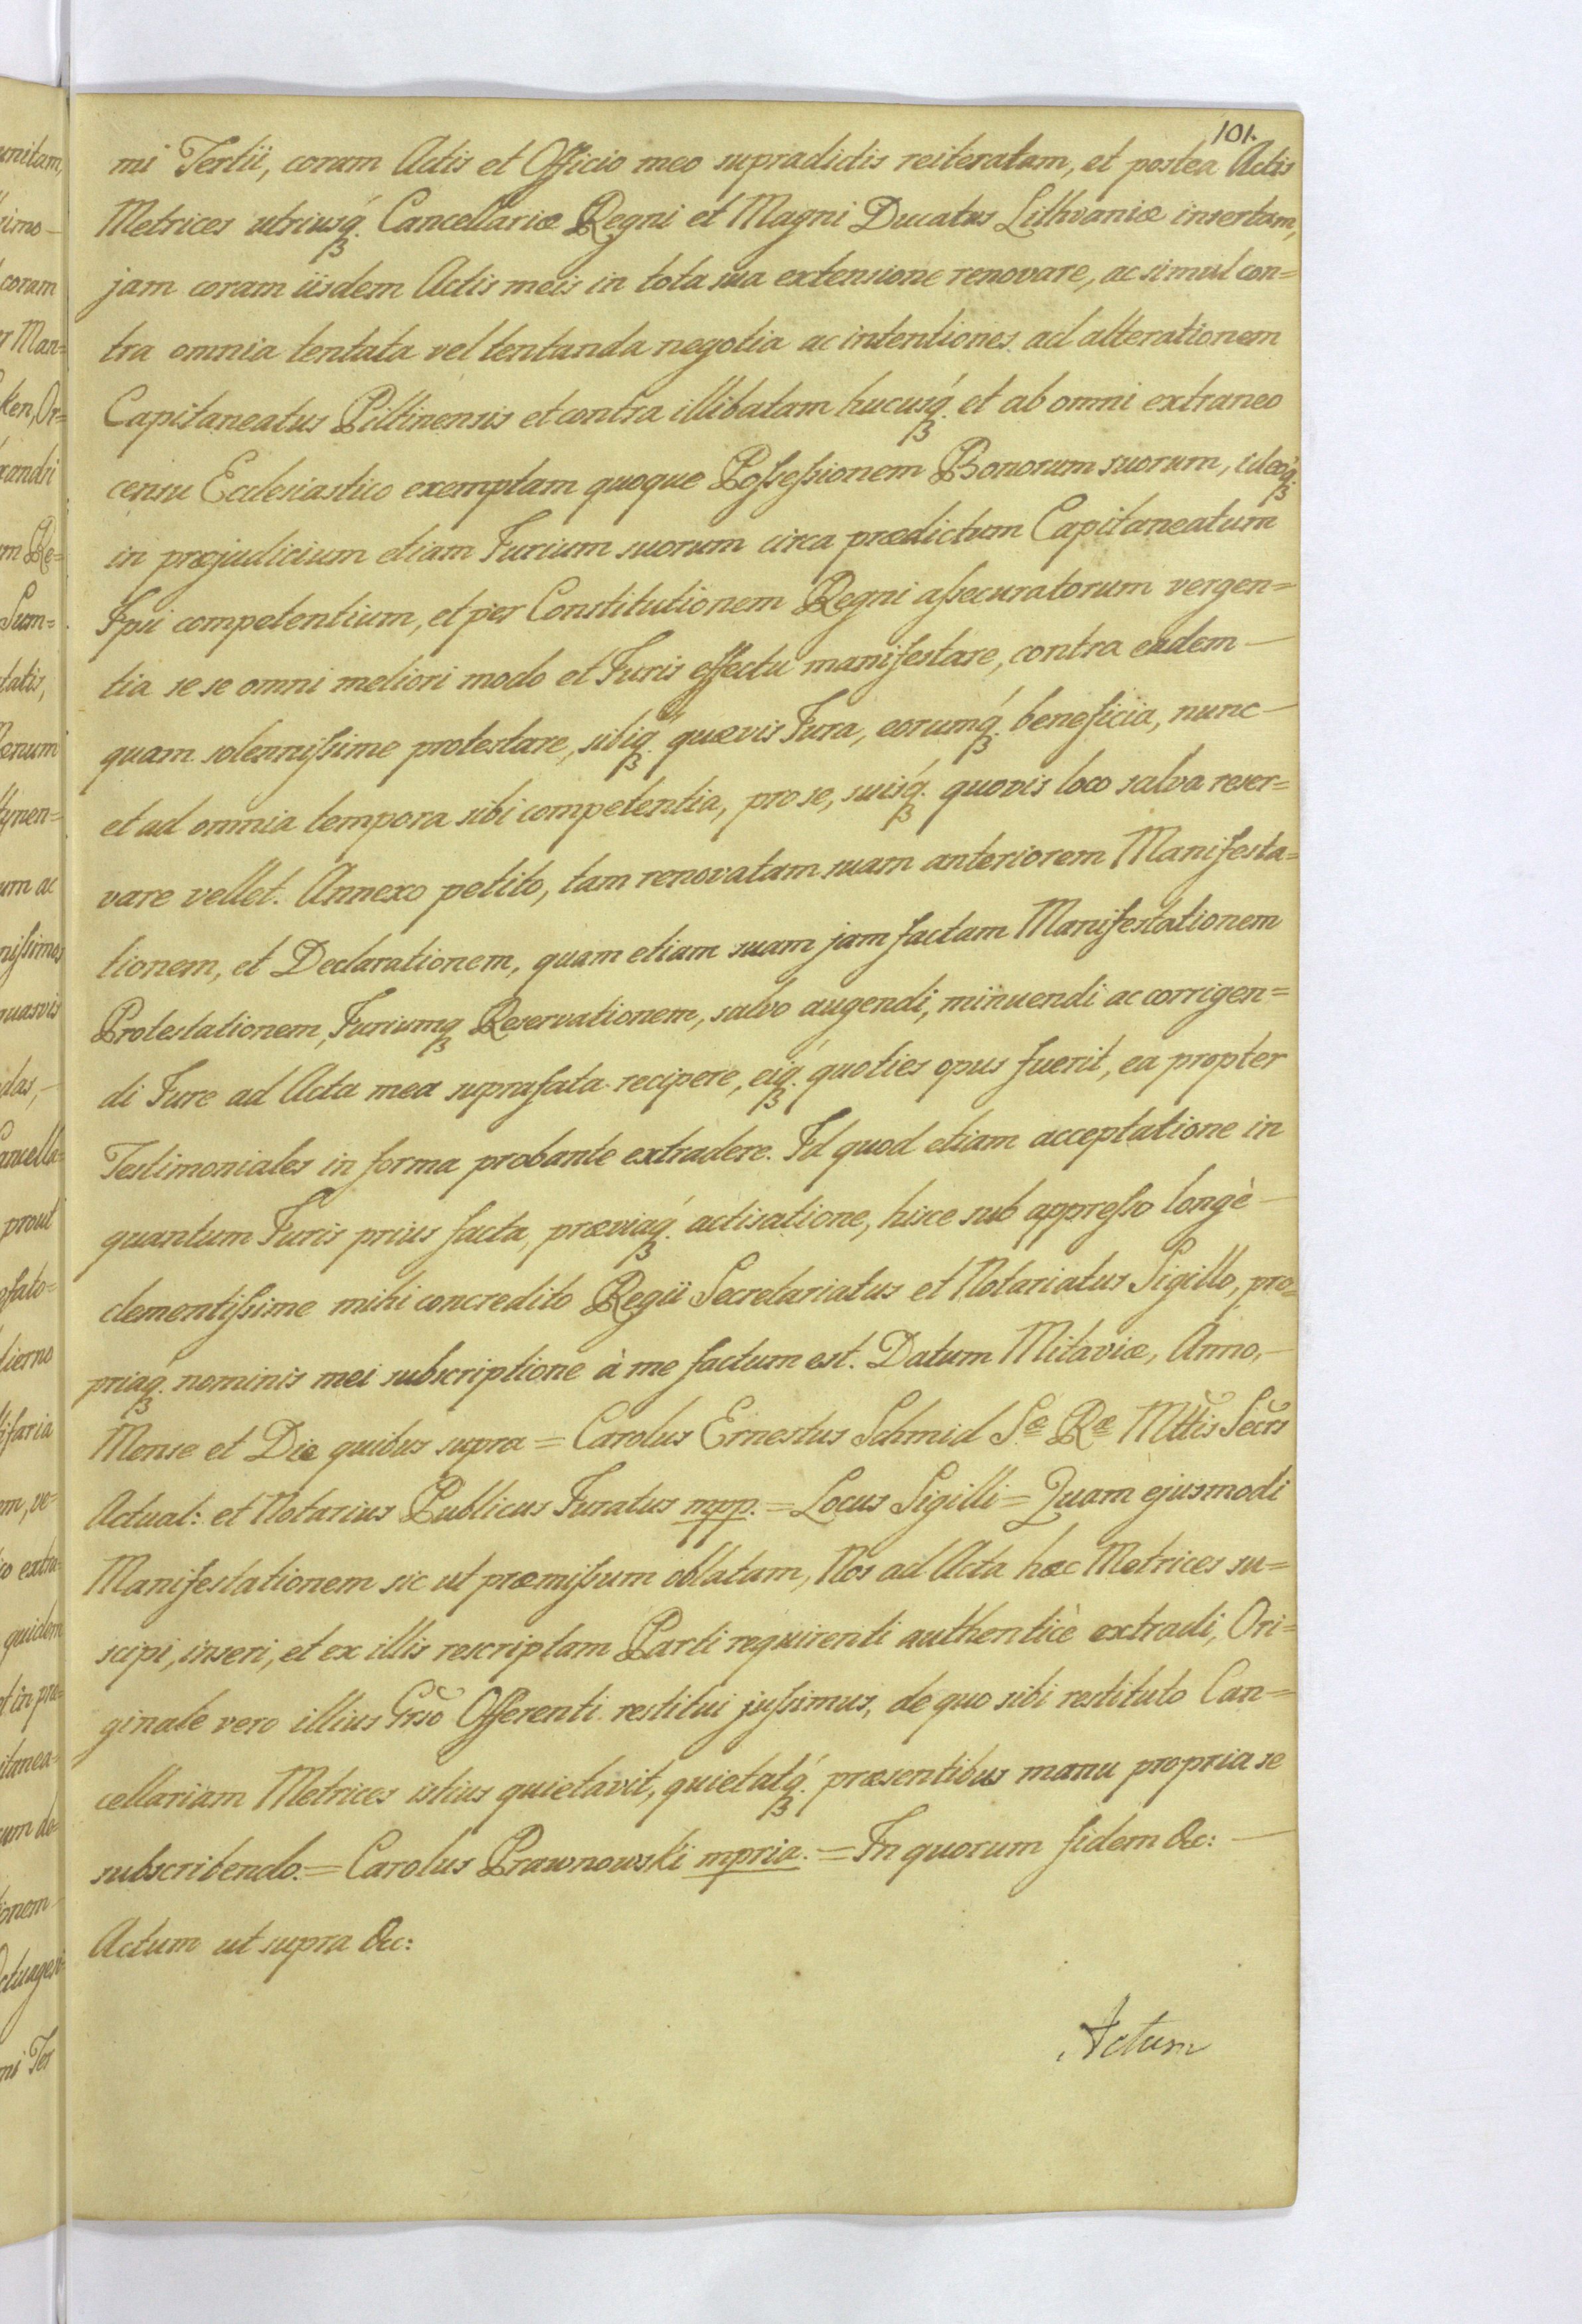 101.
mi Tertii, coram Actis et Officio meo supradictis reiteratam, et postea Actis
Metrices utriusq́ꝫ. Cancellariæ Regni et Magni Ducatus Lithvaniæ insertam,
jam coram iisdem Actis meis in tota sua extensione renovare, ac simul con=
tra omnia tentata vel tentanda negotia ac intentiones ad alterationem
Capitaneatus Piltinensis et contra illibatam hucusq́ꝫ. et ab omni extraneo
censu Ecclesiastico exemptam quoque Possessionem Bonorum suorum, ideoq́ꝫ.
in præjudicium etiam Jurium suorum circa prædictum Capitaneatum
Ipsi competentium, et per Constitutionem Regni assecuratorum vergen=
tia se se omni meliori modo et Juris effectu manifestare, contra eadem —
quam solennissime protestare, sibiq́ꝫ. quævis Jura, eorumq́ꝫ. beneficia, nunc —
et ad omnia tempora sibi competentia, pro se, suisq́ꝫ. quovis loco salva reser=
vare vellet. Annexo petito, tam renovatam suam anteriorem Manifesta=
tionem, et Declarationem, quam etiam suam jam factam Manifestationem
Protestationem, Juriumqꝫ Reservationem, salvo augendi, minuendi ac corrigen=
di Jure ad Acta mea suprafata recipere, eiq́ꝫ. quoties opus fuerit, ea propter
Testimoniales in forma probante extradere. Id quod etiam acceptatione in
quantum Juris prius facta, præviaq́ꝫ. actisatione, hisce sub appresso longè —
clementissime mihi concredito Regii Secretariatus et Notariatus Sigillo, pro=
priaq́ꝫ. nominis mei subscriptione à me factum est. Datum Mitaviæ, Anno, —
Mense et Die quibus supra = Carolus Ernestus Schmid Sæ Ræ Mttis Secrs
Actual: et Notarius Publicus Juratus mpp. = Locus Sigilli = Quam ejusmodi
Manifestationem sic ut præmissum oblatam, Nos ad Acta hæc Metrices su=
scipi, inseri, et ex illis rescriptam Parti requirenti authenticè extradi, Ori=
ginale vero illius Grso Offerenti restitui jussimus, de quo sibi restituto Can=
cellariam Metrices istius quietavit, quietatq́ꝫ. præsentibus manu propria se
subscribendo. = Carolus Prawnowski mpria. = In quorum fidem &c: —
Actum ut supra &c:
Actum